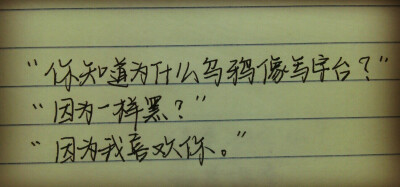 “你知道为什么乌鸦像写字台？”
“因为一样黑？”
“因为我喜欢你。”